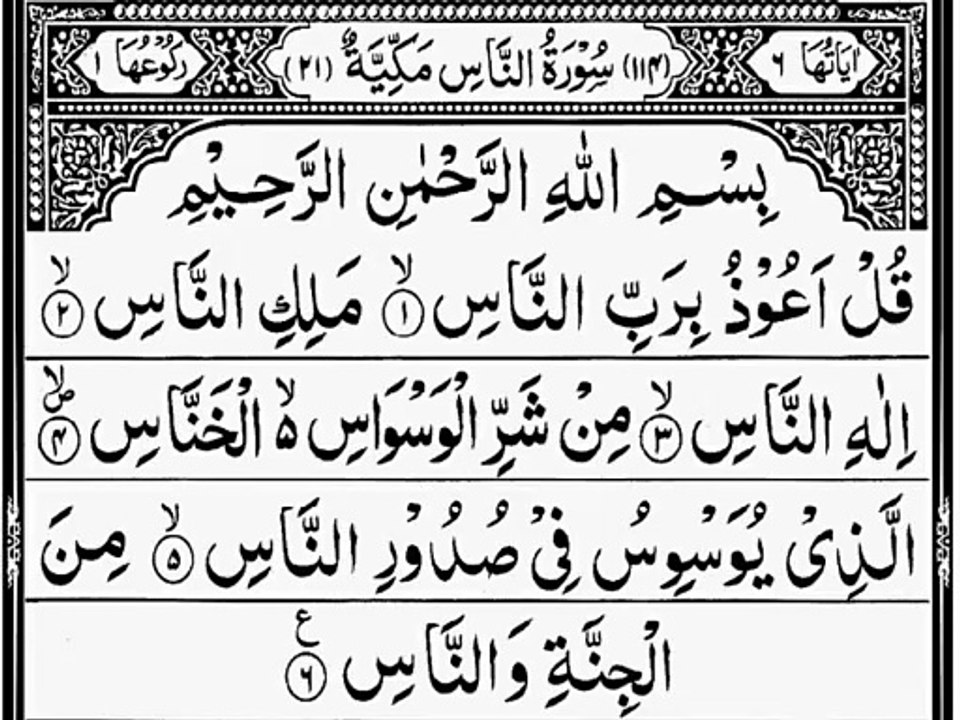 اٰيَاتُهَا ٦ (١١٤) سُوْرَةُ النَّاسِ مَكِّيَّةٌ (٢١) رُكُوْعُهَا ١
بِسْمِ اللهِ الرَّحْمٰنِ الرَّحِيْمِ
قُلْ اَعُوْذُ بِرَبِّ النَّاسِ ۙ﴿١﴾ مَلِكِ النَّاسِ ۙ﴿٢﴾
اِلٰهِ النَّاسِ ۙ﴿٣﴾ مِنْ شَرِّ الْوَسْوَاسِ ۵ۙ الْخَنَّاسِ ﴿۴﴾ۙص
الَّذِىْ يُوَسْوِسُ فِىْ صُدُوْرِ النَّاسِ ۙ﴿۵﴾ مِنَ
الْجِنَّةِ وَالنَّاسِ ﴿٦﴾ ع